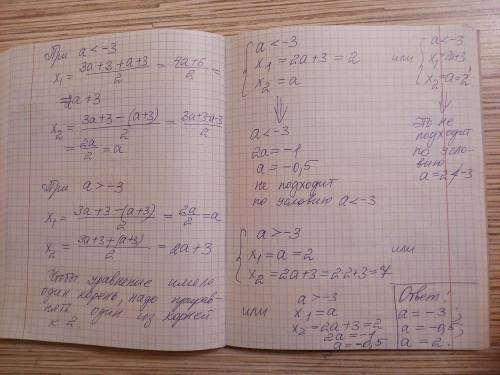 При a < -3
x₁ = (3a+3+a+3)/2 = (4a+6)/2 =
= 2a+3
x₂ = (3a+3-(a+3))/2 = (3a+3-a-3)/2
= 2a/2 = a
При a > -3
x₁ = (3a+3-(a+3))/2 = 2a/2 = a
x₂ = (3a+3+(a+3))/2 = 2a+3
Чтобы уравнение имело
один корень, надо прирав-
нять один из корней
к 2.
{ a < -3
x₁ = 2a+3 = 2
x₂ = a
⇓
a < -3
2a = -1
a = -0,5
не подходит
по условию a < -3
или
{ a < -3
x₁ = 2a+3,
x₂ = a = 2
↓
это не
подходит
по усло-
вию
a = 2 ≮ -3
{ a > -3
x₁ = a = 2
x₂ = 2a+3 = 2·2+3 = 7
или
или
a > -3
x₁ = a
x₂ = 2a+3 = 2
2a = -1
a = -0,5
Ответ:
a = -3;
a = -0,5;
a = 2.